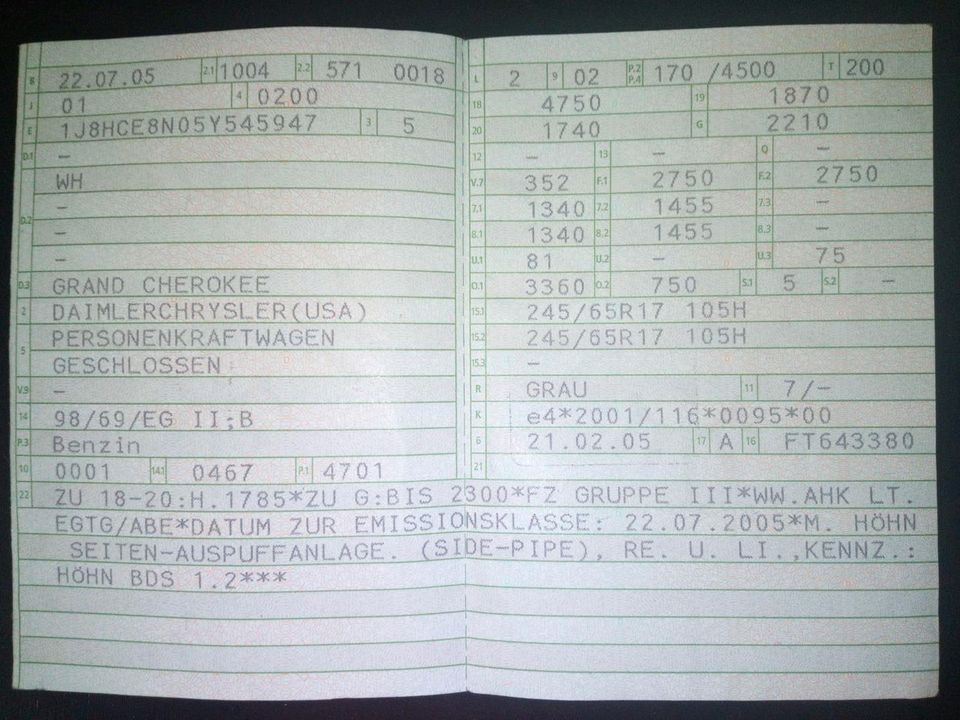 B 22.07.05 2.1 1004 2.2 571 0018
J 01 4 0200
E 1J8HCE8N05Y545947 3 5
D.1 –
D.2 WH
–
–
D.3 GRAND CHEROKEE
2 DAIMLERCHRYSLER(USA)
5 PERSONENKRAFTWAGEN
GESCHLOSSEN
V.9 –
14 98/69/EG II;B
P.3 Benzin
10 0001 14.1 0467 P.1 4701
L 2 9 02 P.2 P.4 170 /4500 T 200
18 4750 19 1870
20 1740 G 2210
12 – 13 – Q –
V.7 352 F.1 2750 F.2 2750
7.1 1340 7.2 1455 7.3 –
8.1 1340 8.2 1455 8.3 –
U.1 81 U.2 – U.3 75
O.1 3360 O.2 750 S.1 5 S.2 –
15.1 245/65R17 105H
15.2 245/65R17 105H
15.3 –
R GRAU 11 7/–
K e4*2001/116*0095*00
6 21.02.05 17 A 16 FT643380
21
22 ZU 18-20:H.1785*ZU G:BIS 2300*FZ GRUPPE III*WW.AHK LT.
EGTG/ABE*DATUM ZUR EMISSIONSKLASSE: 22.07.2005*M. HÖHN
SEITEN-AUSPUFFANLAGE. (SIDE-PIPE), RE. U. LI.,KENNZ.:
HÖHN BDS 1.2***